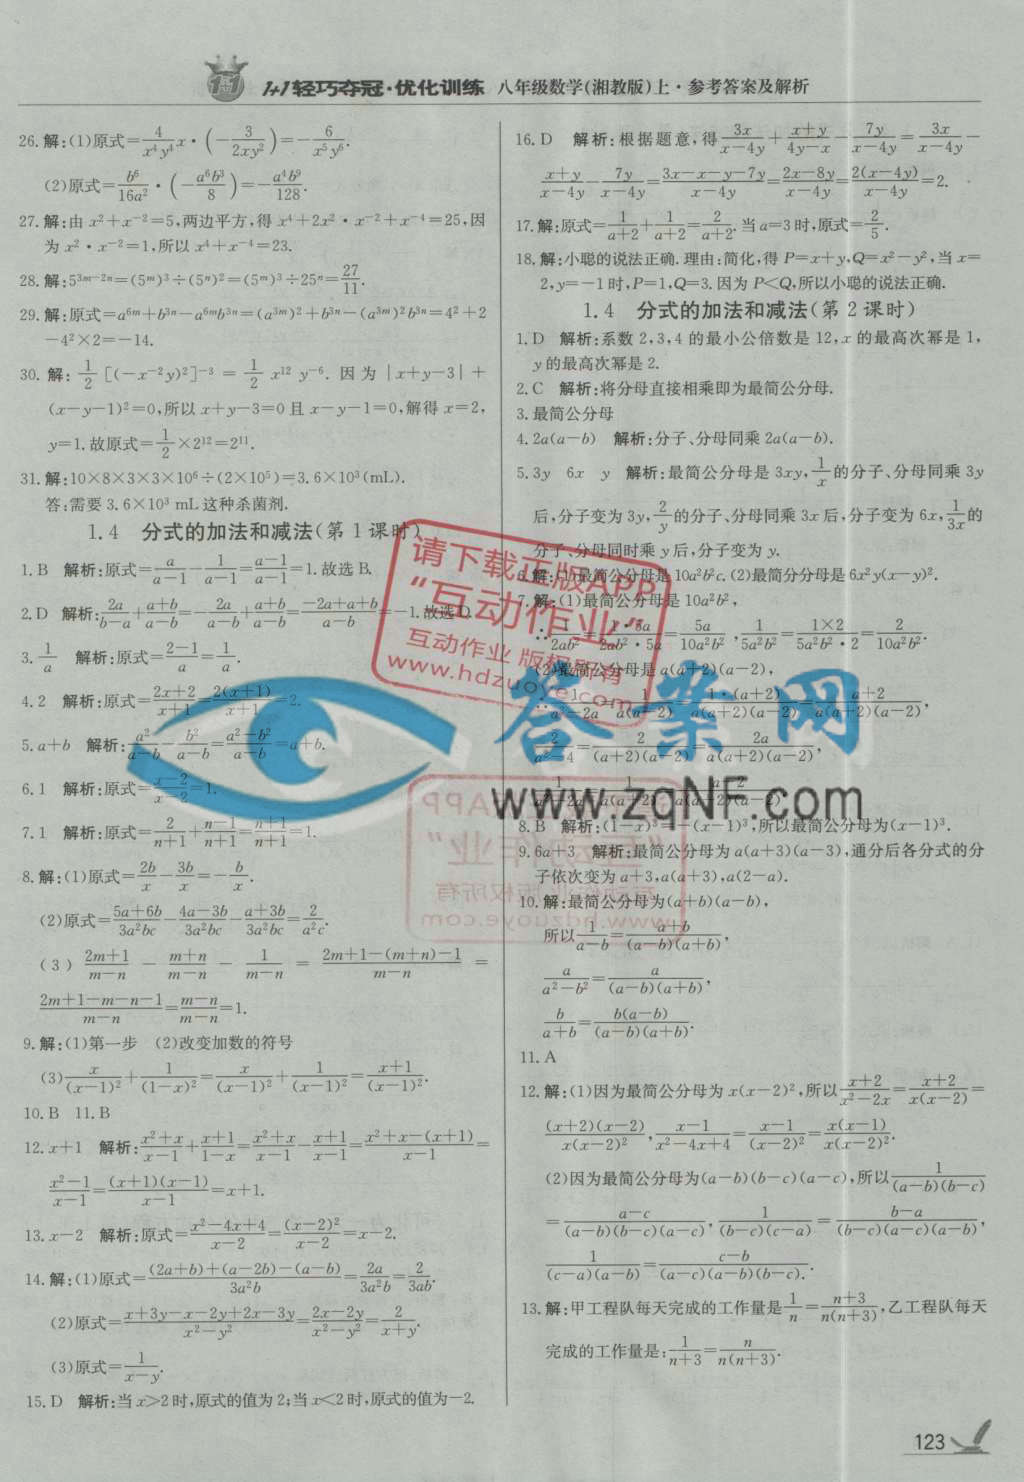 1+1轻巧夺冠·优化训练 八年级数学(湘教版)上·参考答案及解析
26.解:(1)原式=4/(x⁴y⁴)x·(-3/(2xy²))=-6/(x⁵y⁶).
(2)原式=b⁶/(16a²)·(-a⁶b³/8)=-a⁴b⁹/128.
27.解:由x²+x⁻²=5,两边平方,得x⁴+2x²·x⁻²+x⁻⁴=25,因
为x²·x⁻²=1,所以x⁴+x⁻⁴=23.
28.解:5³ᵐ⁻²ⁿ=(5ᵐ)³÷(5ⁿ)²=(5ᵐ)³÷25ⁿ=27/11.
29.解:原式=a⁶ᵐ+b³ⁿ-a⁶ᵐb³ⁿ=(a³ᵐ)²+b³ⁿ-(a³ᵐ)²b³ⁿ=4²+2
-4²×2=-14.
30.解:1/2[(-x⁻²y)²]⁻³=1/2 x¹² y⁻⁶.因为|x+y-3|+
(x-y-1)²=0,所以x+y-3=0且x-y-1=0,解得x=2,
y=1.故原式=1/2×2¹²=2¹¹.
31.解:10×8×3×3×10⁶÷(2×10⁵)=3.6×10³(mL).
答:需要3.6×10³ mL这种杀菌剂.
1.4 分式的加法和减法(第1课时)
1.B 解析:原式=a/(a-1)-1/(a-1)=(a-1)/(a-1)=1.故选B.
2.D 解析:2a/(b-a)+(a+b)/(a-b)=-2a/(a-b)+(a+b)/(a-b)=(-2a+a+b)/(a-b)=-1.故选D.
3.1/a 解析:原式=(2-1)/a=1/a.
4.2 解析:原式=(2x+2)/(x+1)=2(x+1)/(x+1)=2.
5.a+b 解析:a²/(a-b)-b²/(a-b)=(a²-b²)/(a-b)=a+b.
6.1 解析:原式=(x-2)/(x-2)=1.
7.1 解析:原式=2/(n+1)+(n-1)/(n+1)=(n+1)/(n+1)=1.
8.解:(1)原式=2b/x-3b/x=-b/x.
(2)原式=(5a+6b)/(3a²bc)-(4a-3b)/(3a²bc)-(a+3b)/(3a²bc)=2/(a²c).
(3)(2m+1)/(m-n)-(m+n)/(m-n)-1/(m-n)=(2m+1-(m+n)-1)/(m-n)=
(2m+1-m-n-1)/(m-n)=(m-n)/(m-n)=1.
9.解:(1)第一步 (2)改变加数的符号
(3)x/(x-1)²+1/(1-x)²=x/(x-1)²+1/(x-1)²=(x+1)/(x-1)².
10.B 11.B
12.x+1 解析:(x²+x)/(x-1)+(x+1)/(1-x)=(x²+x)/(x-1)-(x+1)/(x-1)=(x²+x-(x+1))/(x-1)=
(x²-1)/(x-1)=(x+1)(x-1)/(x-1)=x+1.
13.x-2 解析:原式=(x²-4x+4)/(x-2)=(x-2)²/(x-2)=x-2.
14.解:(1)原式=((2a+b)+(a-2b)-(a-b))/(3a²b)=2a/(3a²b)=2/(3ab).
(2)原式=(x+3y-x-2y+2x-3y)/(x²-y²)=(2x-2y)/(x²-y²)=2/(x+y).
(3)原式=1/(x-y).
15.D 解析:当x>2时,原式的值为2;当x<2时,原式的值为-2.
16.D 解析:根据题意,得3x/(x-4y)+(x+y)/(4y-x)-7y/(x-4y)=3x/(x-4y)-
(x+y)/(x-4y)-7y/(x-4y)=(3x-x-y-7y)/(x-4y)=(2x-8y)/(x-4y)=2(x-4y)/(x-4y)=2.
17.解:原式=1/(a+2)+1/(a+2)=2/(a+2).当a=3时,原式=2/5.
18.解:小聪的说法正确.理由:简化,得P=x+y,Q=x²-y²,当x=
2,y=-1时,P=1,Q=3.因为P<Q,所以小聪的说法正确.
1.4 分式的加法和减法(第2课时)
1.D 解析:系数2,3,4的最小公倍数是12,x的最高次幂是1,
y的最高次幂是2.
2.C 解析:将分母直接相乘即为最简公分母.
3.最简公分母
4.2a(a-b) 解析:分子、分母同乘2a(a-b).
5.3y 6x y 解析:最简公分母是3xy,1/x的分子、分母同乘3y
后,分子变为3y,2/y的分子、分母同乘3x后,分子变为6x,1/(3x)的
分子、分母同时乘y后,分子变为y.
6.解:(1)最简公分母是10a²b²c.(2)最简分分母是6x²y(x-y)².
7.解:(1)最简公分母是10a²b²,
∴1/(2ab²)=(1·5a)/(2ab²·5a)=5a/(10a²b²),1/(5a²b²)=(1×2)/(5a²b²·2)=2/(10a²b²).
(2)最简公分母是a(a+2)(a-2),
∴1/(a²-2a)=1/(a(a-2))=1·(a+2)/(a(a+2)(a-2))=(a+2)/(a(a+2)(a-2)),
2/(a²-4)=2/((a+2)(a-2))=2a/(a(a+2)(a-2)),
8.B 解析:(1-x)³=-(x-1)³,所以最简公分母为(x-1)³.
9.6a+3 解析:最简公分母为a(a+3)(a-3),通分后各分式的分
子依次变为a+3,a(a+3),a(2-a).
10.解:最简公分母为(a+b)(a-b),
所以1/(a-b)=(a+b)/((a-b)(a+b)),
a/(a²-b²)=a/((a-b)(a+b)),
b/(a+b)=b(a-b)/((a-b)(a+b)).
11.A
12.解:(1)因为最简公分母为x(x-2)²,所以(x+2)/(x²-2x)=(x+2)/(x(x-2))=
(x+2)(x-2)/(x(x-2)²),(x-1)/(x²-4x+4)=(x-1)/(x-2)²=x(x-1)/(x(x-2)²).
(2)因为最简公分母为(a-b)(b-c)(a-c),所以1/((a-b)(b-c))
=(a-c)/((a-b)(b-c)(a-c)),1/((b-c)(c-a))=(b-a)/((b-c)(a-c)(a-b)),
1/((c-a)(a-b))=(c-b)/((a-c)(a-b)(b-c)).
13.解:甲工程队每天完成的工作量是1/n=(n+3)/(n(n+3)),乙工程队每天
完成的工作量是:1/(n+3)=n/(n(n+3)).
123
请下载正版APP
“互动作业”
互动作业 版权所有
www.hdzuoye.com
答案网
www.zqNF.com